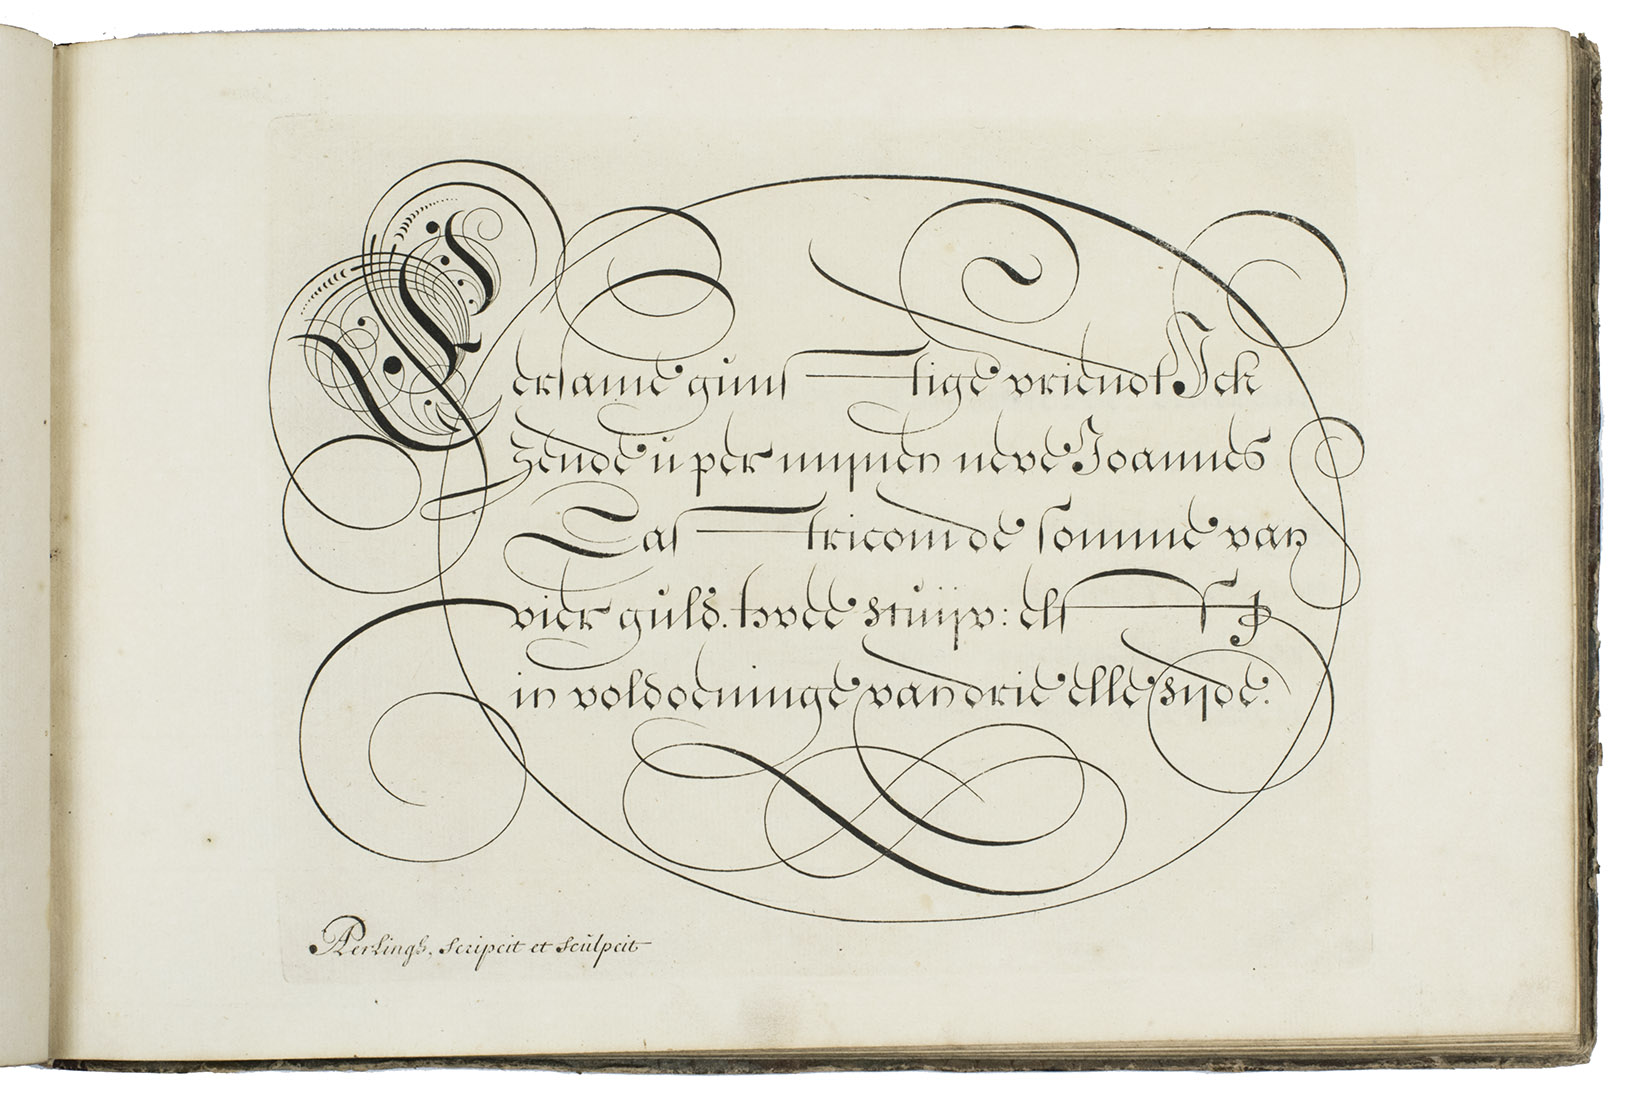 Eersame gunstige vriendt Ick
zende u per mijnen neve Joannes
Castricom de somme van
vier guld. twee stuijv: elff ₰
in voldoeninge van drie elle zijde.
APerlingh. Scripcit et Sculpcit